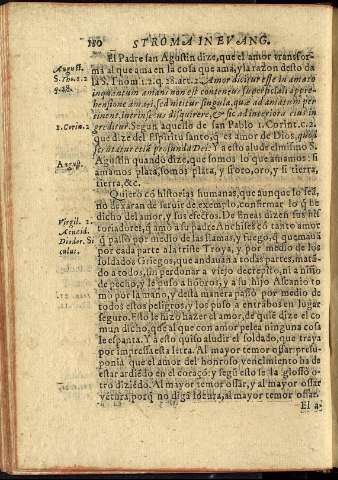 180 STROMA IN EVANG.
El Padre san Agustin dize, que el amor transfor-
ma al que ama en la cosa que ama, y la razon desto da
la S. Thom. 1.2. q. 28. art. 2. Amor dicitur esse in amato
inquantum amans non est contentus superficiali appre-
hensione amati, sed nititur singula, quæ ad amatum per
tinent, intrinsecus disquirere, & sic ad interiora eius in
greditur. Segun aquello de san Pablo 1. Corint. c. 2.
que dize del Espiritu santo, q̃ es amor de Dios, quod
scrutatur etiã profunda Dei. Y a esto alude el mismo S.
Agustin quando dize, que somos lo que amamos: si
amamos plata, somos plata, y si oro, oro, y si tierra,
tierra, &c.
Quiero cõ historias humanas, que aunque lo seã,
no dexaran de seruir de exemplo, confirmar lo q̃ he
dicho del amor, y sus efectos. De Eneas dizen sus his
toriadores, q̃ amò a su padre Anchises cõ tanto amor
q̃ passò por medio de las llamas, y fuego, q̃ quemauã
por cada parte a la triste Troya, y por medio de los
soldados Griegos, que andauã a todas partes, matã-
do a todos, sin perdonar a viejo decrepito, ni a niño
de pecho, y le puso a hõbros, y a su hijo Ascanio to
mò por la mano, y desta manera passò por medio de
todos estos peligros, y los puso a entrãbos en lugar
seguro. Esto le hizo hazer el amor, de quiẽ dize el co
mun dicho, que al que con amor pelea ninguna cosa
le espanta. Y a esto quiso aludir el soldado, que traya
por impressa esta letra. Al mayor temor ossar: presu-
ponia que el amor del honroso vencimiento ha de
estar ardiẽdo en el coraçõ: y segũ esto se la glossò o-
tro diziẽdo. Al mayor temor ossar, y al mayor ossar
vẽtura, porq̃ no digã locura, al mayor temor ossar.
El a-
August.
S. Tho. 1. 2
q. 28.
1. Corin. 2
August.
Virgil. 2.
Æneid.
Diodor. Si
culus.